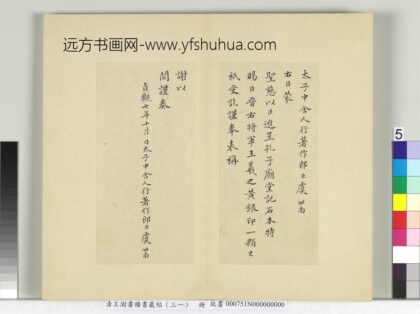 远方书画网-www.yfshuhua.com
太子中舍人行著作郎臣虞世南
右臣蒙
聖慈以臣進呈孔子廟堂記石本特
賜臣晋右將軍王羲之黄銀印一顆臣
祗受訖謹奉表稱
謝以
聞謹奏
貞觀七年十月 日太子中舍人行著作郎臣虞世南
5
清王澍書積書巖帖(三一) 冊 故書000751N000000000